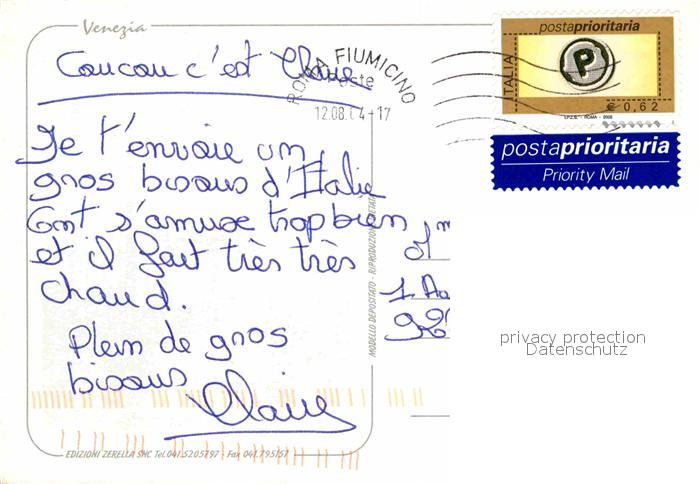 Venezia
Coucou c'est Claire
ROMA FIUMICINO
Poste
12.08.04-17
postaprioritaria
ITALIA
P
€ 0,62
I.P.Z.S. - ROMA - 2002
postaprioritaria
Priority Mail
Je t'envoie un
gros bisous d'Italie
Ont s'amuse trop bien
et il fait très très
chaud.
Plein de gros
bisous
Claire
MODELLO DEPOSITATO - RIPRODUZIONE VIETATA
92
privacy protection
Datenschutz
EDIZIONI ZERELLA SNC Tel. 041.5205797 - Fax 041.795157